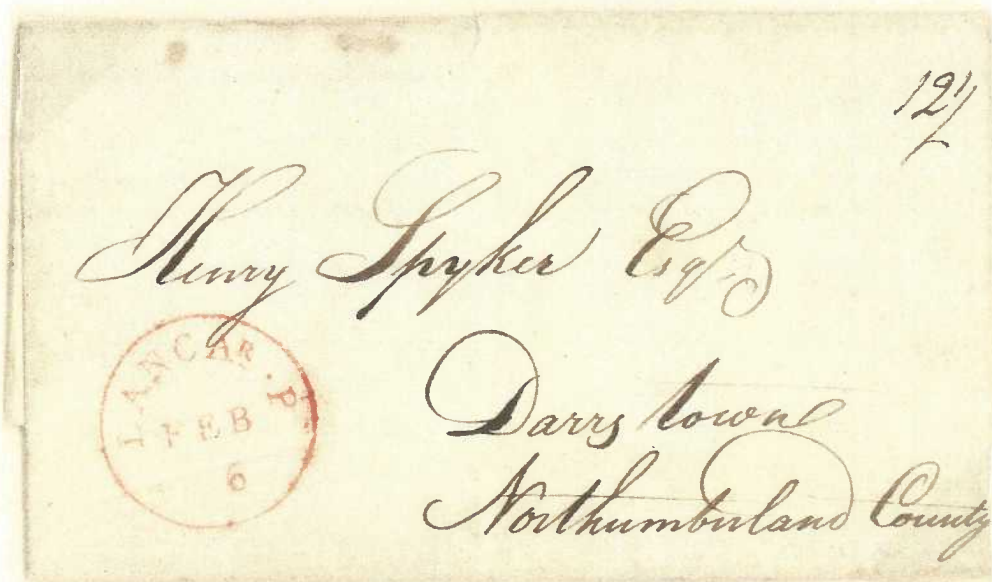 12½
Henry Spyker Esqr.
LANCAR. P
FEB
6
Darrs town
Northumberland County